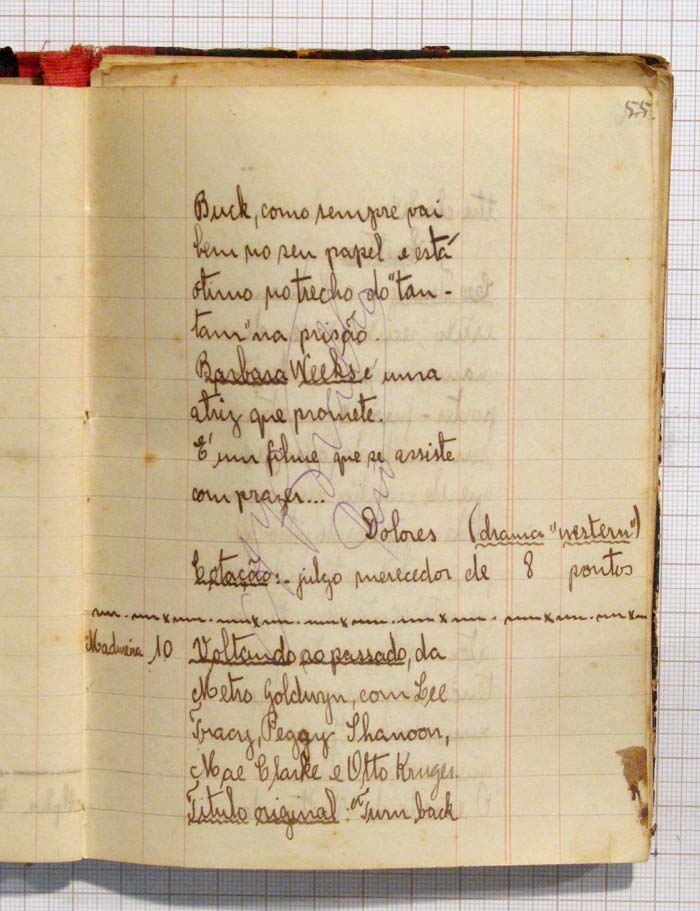 55.
Buck, como sempre vai
bem no seu papel e está
otimo no trecho do "tan-
tam" na prisão.
Barbara Weeks é uma
atriz que promete.
E' um filme que se assiste
com prazer...
Dolores (drama "western")
Cotação:- julgo merecedor de 8 pontos
Madureira 10 Voltando ao passado, da
Metro Goldwyn, com Lee
Tracy, Peggy Shanoon,
Mae Clarke e Otto Kruger.
Titulo original: "Turn back